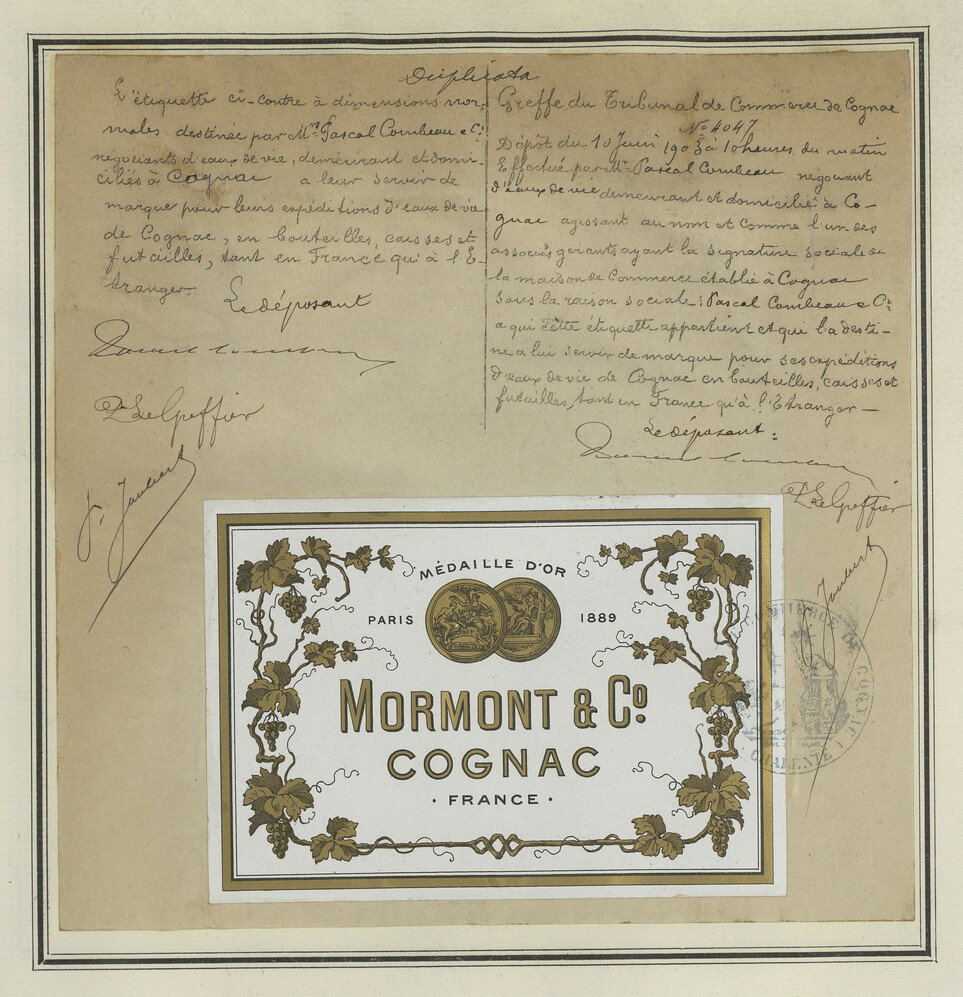 Duplicata
L'étiquette ci-contre à dimensions nor-
males destinée par Mrs Pascal Combeau & Cie
négociants d'eaux de vie, demeurant et domi-
ciliés à Cognac a leur servir de
marque pour leurs expéditions d'eaux de vie
de Cognac, en bouteilles, caisses et
futailles, tant en France qu'à l'E-
tranger.
Le déposant
Pascal Combeau
P. Le Greffier
J. Joubert
Greffe du Tribunal de Commerce de Cognac
No 4047
Dépôt du 10 Juin 1903 à 10 heures du matin
Effectué par Mr Pascal Combeau négociant
d'eaux de vie demeurant et domicilié à Co-
gnac agissant au nom et comme l'un des
associés gérants ayant la signature sociale de
la maison de Commerce établie à Cognac
sous la raison sociale : Pascal Combeau & Cie
a qui cette étiquette appartient et qui la desti-
ne a lui servir de marque pour ses expéditions
d'eaux de vie de Cognac en bouteilles, caisses et
futailles, tant en France qu'à l'Etranger —
Le déposant :
Pascal Combeau
P. Le Greffier
J. Joubert
MÉDAILLE D'OR
PARIS 1889
MORMONT & Co.
COGNAC
· FRANCE ·
COMMERCE DE COGNAC
CHARENTE